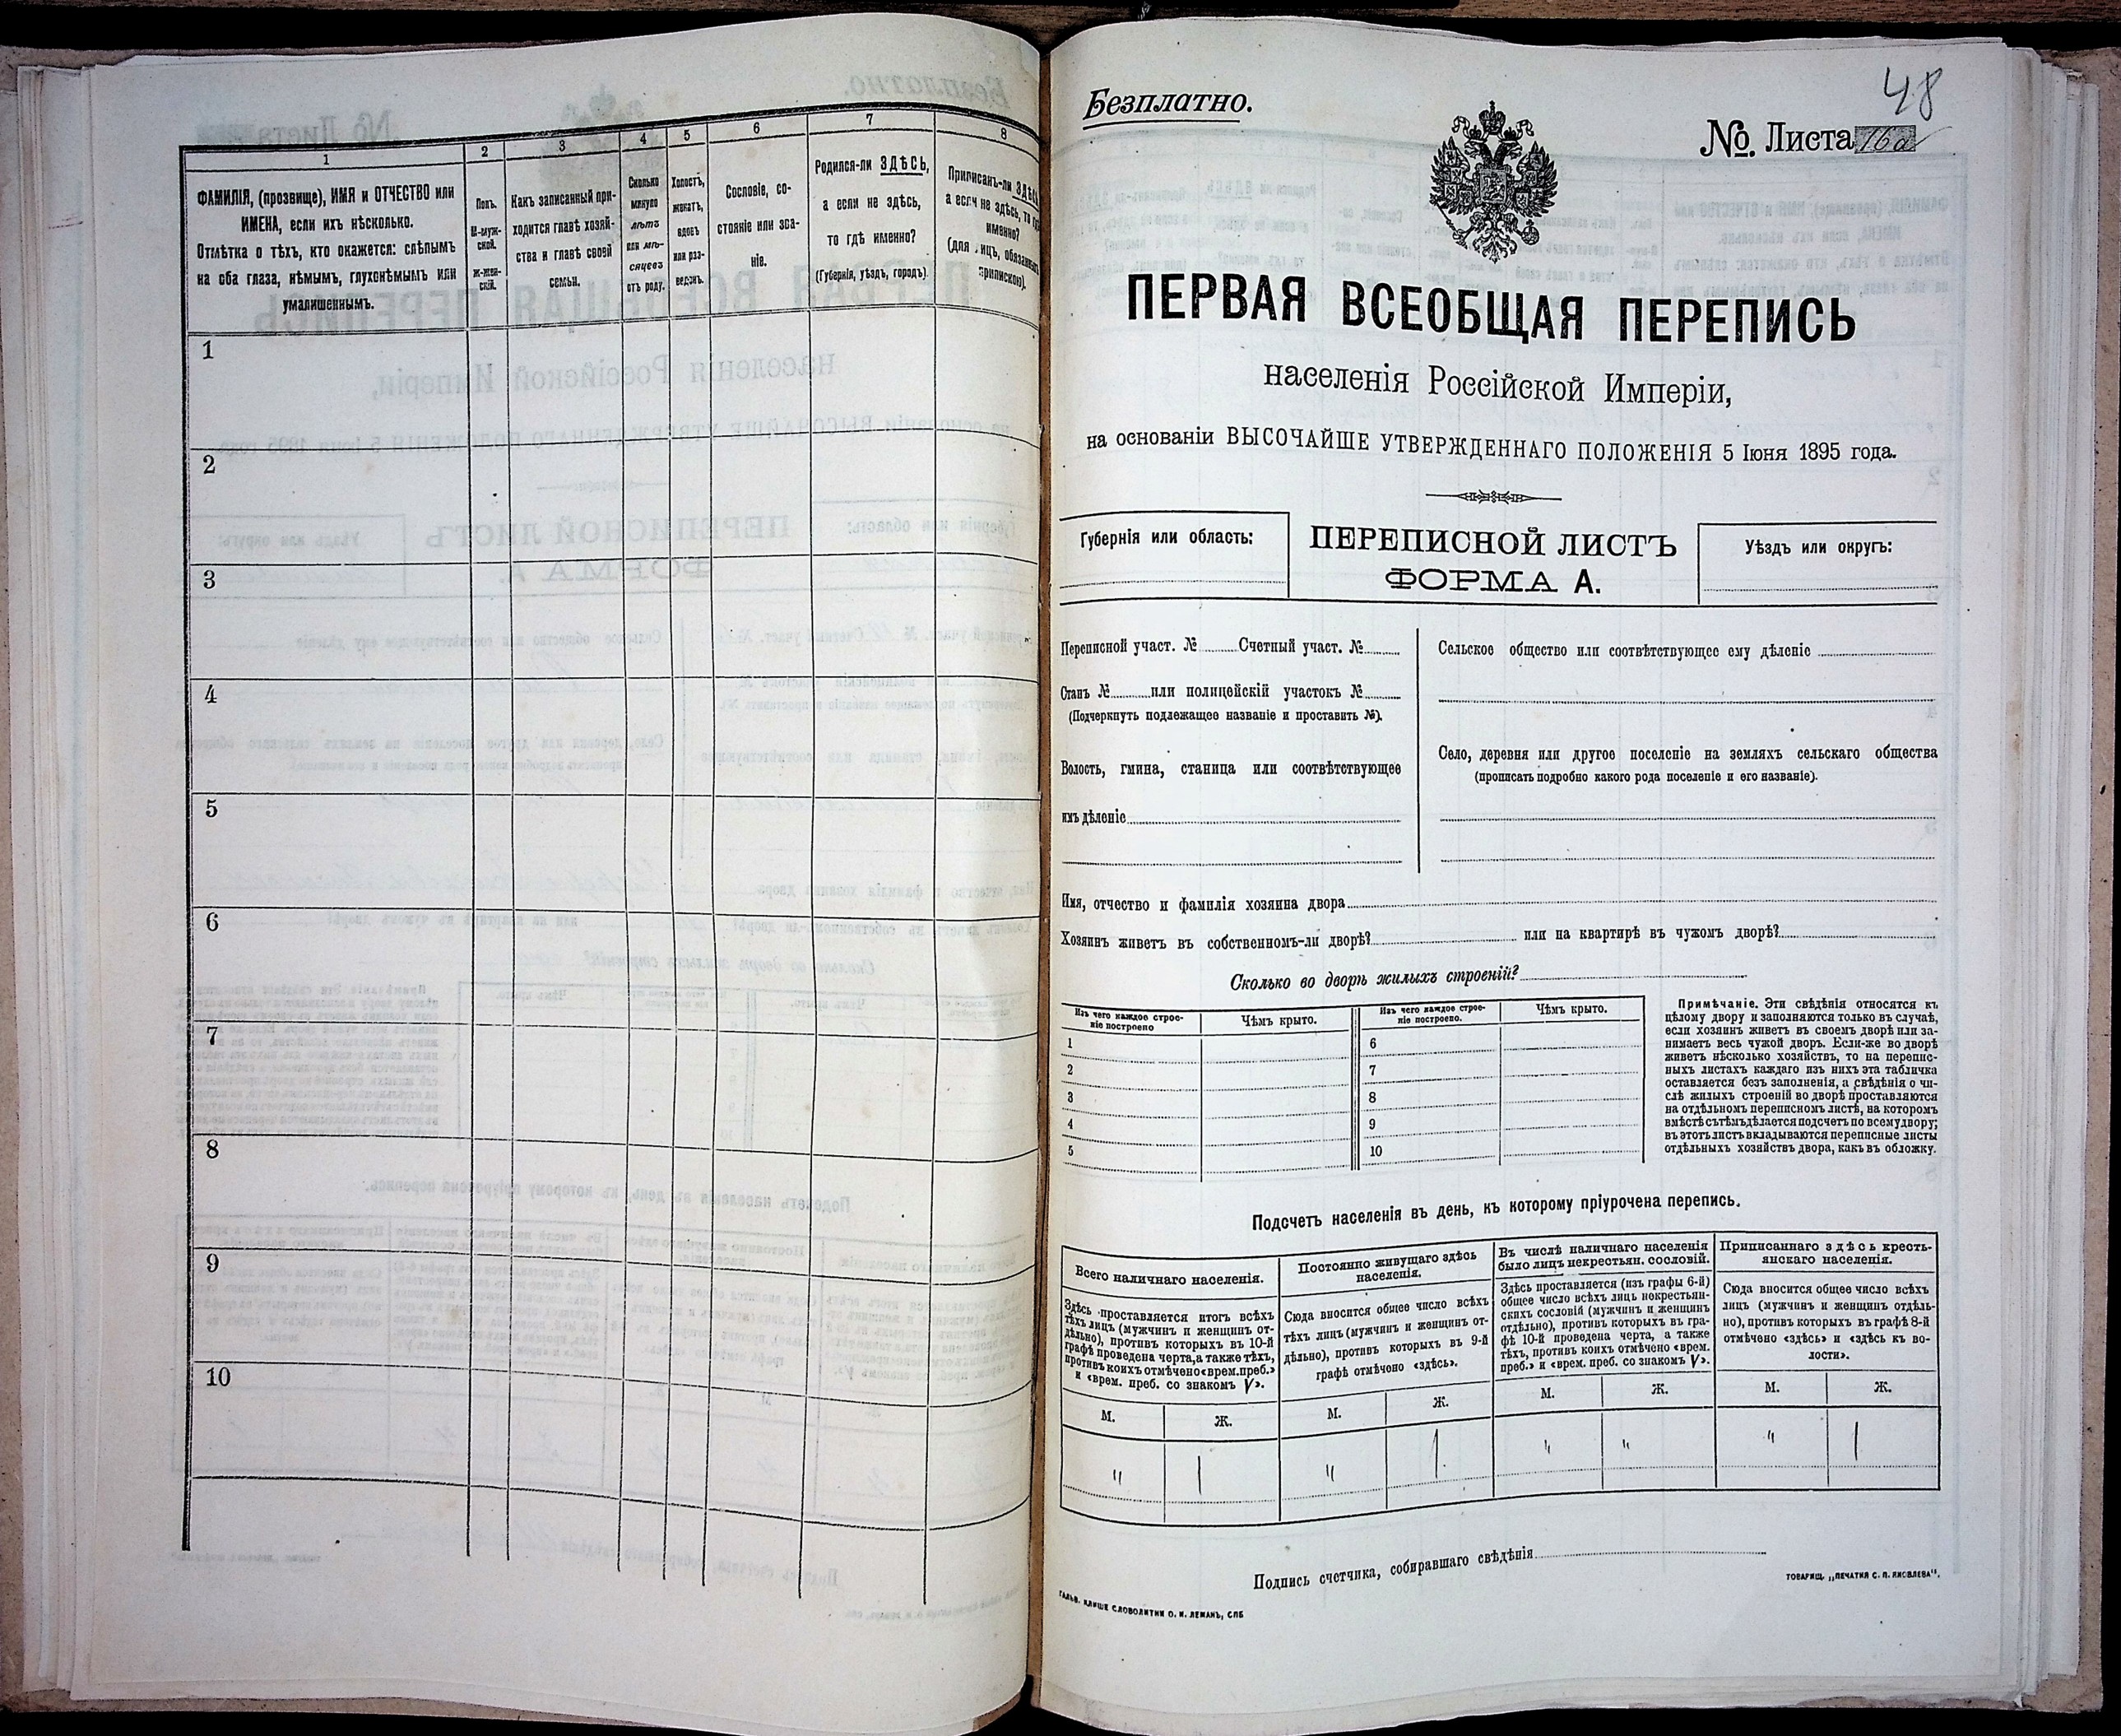 1
2
3
4
5
6
7
8
ФАМИЛІЯ, (прозвище), ИМЯ и ОТЧЕСТВО или
ИМЕНА, если ихъ нѣсколько.
Отмѣтка о тѣхъ, кто окажется: слѣпымъ
на оба глаза, нѣмымъ, глухонѣмымъ или
умалишеннымъ.
Полъ.
М-муж-
ской.
ж-жен-
скій.
Какъ записанный при-
ходится главѣ хозяй-
ства и главѣ своей
семьи.
Сколько
минуло
лѣтъ
или мѣ-
сяцевъ
отъ роду.
Холостъ,
женатъ,
вдовъ
или раз-
веденъ.
Сословіе, со-
стояніе или зва-
ніе.
Родился-ли ЗДѢСЬ,
а если не здѣсь,
то гдѣ именно?
(Губернія, уѣздъ, городъ).
Приписанъ-ли ЗДѢСЬ
а если не здѣсь, то гдѣ
именно?
(для лицъ, обязанныхъ
припискою).
1
2
3
4
5
6
7
8
9
10
48
Безплатно.
№ Листа 16а
ПЕРВАЯ ВСЕОБЩАЯ ПЕРЕПИСЬ
населенія Россійской Имперіи,
на основаніи ВЫСОЧАЙШЕ УТВЕРЖДЕННАГО ПОЛОЖЕНІЯ 5 Іюня 1895 года.
Губернія или область:
ПЕРЕПИСНОЙ ЛИСТЪ
ФОРМА А.
Уѣздъ или округъ:
Переписной участ. № Счетный участ. №
Станъ № или полицейскій участокъ №
(Подчеркнуть подлежащее названіе и проставить №).
Волость, гмина, станица или соотвѣтствующее
имъ дѣленіе
Сельское общество или соотвѣтствующее ему дѣленіе
Село, деревня или другое поселеніе на земляхъ сельскаго общества
(прописать подробно какого рода поселеніе и его названіе).
Имя, отчество и фамилія хозяина двора
Хозяинъ живетъ въ собственномъ-ли дворѣ? или на квартирѣ въ чужомъ дворѣ?
Сколько во дворѣ жилыхъ строеній?
Изъ чего каждое строе-
ніе построено
Чѣмъ крыто.
Изъ чего каждое строе-
ніе построено.
Чѣмъ крыто.
1
6
2
7
3
8
4
9
5
10
Примѣчаніе. Эти свѣдѣнія относятся къ
цѣлому двору и заполняются только въ случаѣ,
если хозяинъ живетъ въ своемъ дворѣ или за-
нимаетъ весь чужой дворъ. Если-же во дворѣ
живетъ нѣсколько хозяйствъ, то на перепис-
ныхъ листахъ каждаго изъ нихъ эта табличка
оставляется безъ заполненія, а свѣдѣнія о чи-
слѣ жилыхъ строеній во дворѣ проставляются
на отдѣльномъ переписномъ листѣ, на которомъ
вмѣстѣ съ тѣмъ дѣлается подсчетъ по всему двору;
въ этотъ листъ вкладываются переписные листы
отдѣльныхъ хозяйствъ двора, какъ въ обложку.
Подсчетъ населенія въ день, къ которому пріурочена перепись.
Всего наличнаго населенія.
Здѣсь проставляется итогъ всѣхъ
тѣхъ лицъ (мужчинъ и женщинъ от-
дѣльно), противъ которыхъ въ 10-й
графѣ проведена черта, а также тѣхъ,
противъ коихъ отмѣчено «врем. преб.»
и «врем. преб. со знакомъ V».
Постоянно живущаго здѣсь
населенія.
Сюда вносится общее число всѣхъ
тѣхъ лицъ (мужчинъ и женщинъ от-
дѣльно), противъ которыхъ въ 9-й
графѣ отмѣчено «здѣсь».
Въ числѣ наличнаго населенія
было лицъ некрестьян. сословій.
Здѣсь проставляется (изъ графы 6-й)
общее число всѣхъ лицъ некрестьян-
скихъ сословій (мужчинъ и женщинъ
отдѣльно), противъ которыхъ въ гра-
фѣ 10-й проведена черта, а также
тѣхъ, противъ коихъ отмѣчено «врем.
преб.» и «врем. преб. со знакомъ V».
Приписаннаго здѣсь кресть-
янскаго населенія.
Сюда вносится общее число всѣхъ
лицъ (мужчинъ и женщинъ отдѣль-
но), противъ которыхъ въ графѣ 8-й
отмѣчено «здѣсь» и «здѣсь къ во-
лости».
М. Ж. М. Ж. М. Ж. М. Ж.
" 1 " 1 " " " 1
Подпись счетчика, собиравшаго свѣдѣнія
ГАЛЬВ. КЛИШЕ СЛОВОЛИТНИ О. И. ЛЕМАНЪ, СПБ
ТОВАРИЩ. „ПЕЧАТНЯ С. П. ЯКОВЛЕВА".